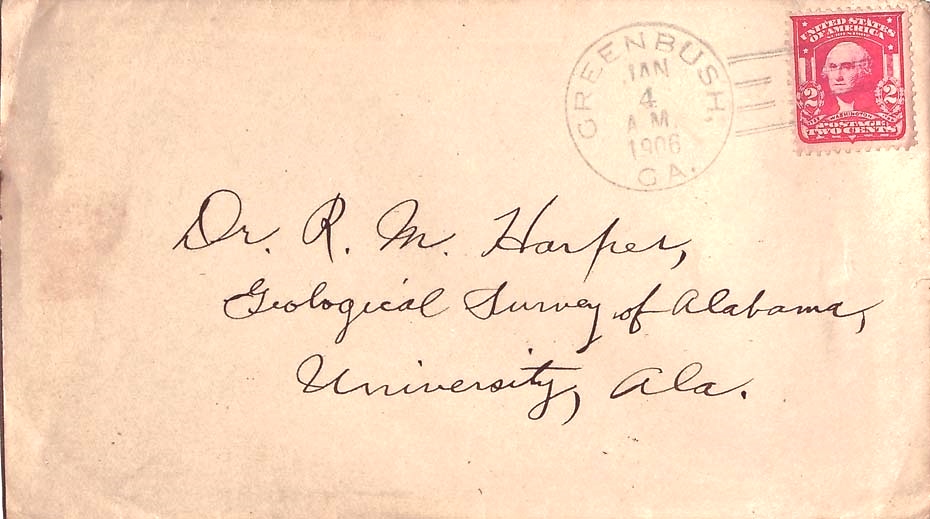 GREENBUSH,
JAN
4
A.M.
1906
GA.
UNITED STATES
OF AMERICA
2 2
WASHINGTON
POSTAGE
TWO CENTS
Dr. R. M. Harper,
Geological Survey of Alabama,
University, Ala.